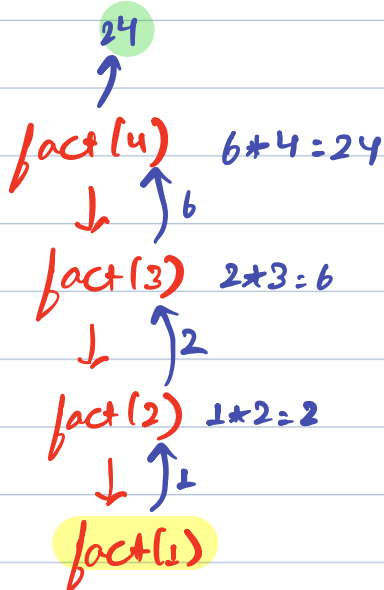 24
fact(4) 6*4=24
6
fact(3) 2*3=6
2
fact(2) 1*2=2
1
fact(1)